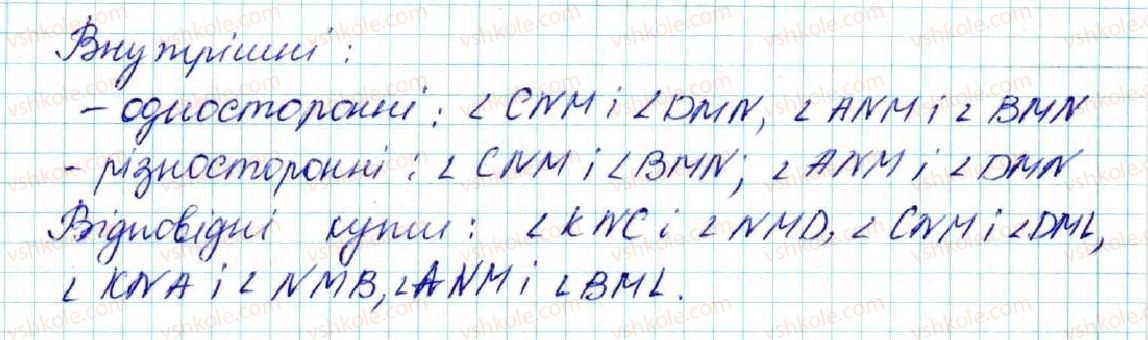 Внутрішні:
- односторонні: ∠CNM і ∠DMN, ∠ANM і ∠BMN
- різносторонні: ∠CNM і ∠BMN; ∠ANM і ∠DMN
Відповідні кути: ∠KNC і ∠NMD, ∠CNM і ∠DML,
∠KNA і ∠NMB, ∠ANM і ∠BML.